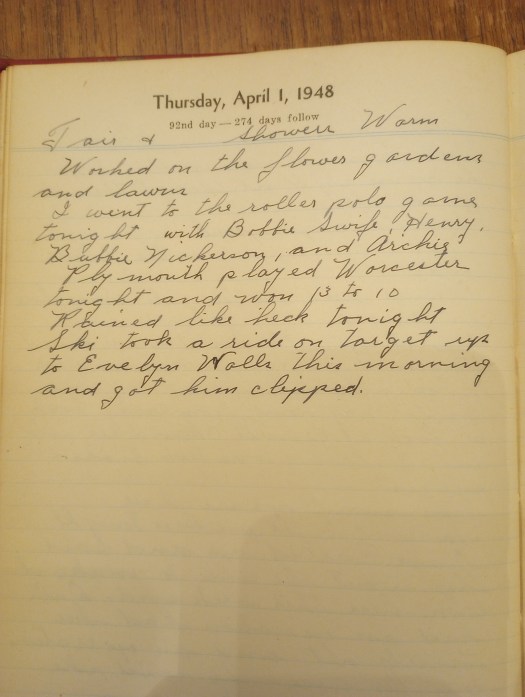 Thursday, April 1, 1948
92nd day — 274 days follow
Fair & showers Warm
Worked on the flower gardens
and lawns
I went to the roller polo game
tonight with Bobbie Swift, Henry,
Bubbie Nickerson, and Archie
Plymouth played Worcester
tonight and won 13 to 10
Rained like heck tonight
Ski took a ride on Target up
to Evelyn Walls this morning
and got him clipped.